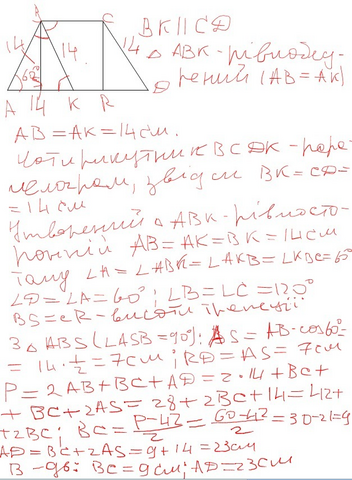 B C
BK || CD
14 14 14
△ ABK - рівнобед-
рений (AB = AK)
60°
A 14 K R D
AB = AK = 14 см.
Чотирикутник BCDK - пара-
лелограм, звідси BK = CD =
= 14 см
Утворений △ ABK - рівносто-
ронній AB = AK = BK = 14 см
тому ∠A = ∠ABK = ∠AKB = ∠KBC = 60°
∠D = ∠A = 60°; ∠B = ∠C = 120°
BS = CR - висоти трапеції
З △ ABS (∠ASB = 90°): AS = AB·cos60° =
= 14·1/2 = 7 см; RD = AS = 7 см
P = 2AB + BC + AD = 2·14 + BC +
+ BC + 2AS = 28 + 2BC + 14 = 42 +
+ 2BC; BC = P-42/2 = 60-42/2 = 30-21 = 9
AD = BC + 2AS = 9 + 14 = 23 см
В-дь: BC = 9 см; AD = 23 см